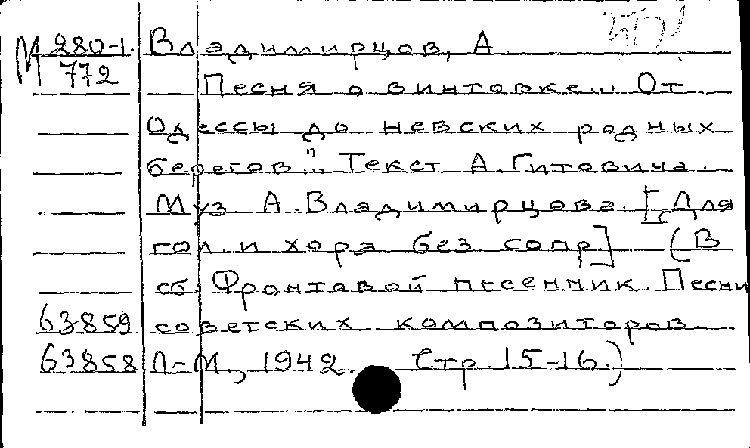 М 280-1. Владимирцов, А.
772 Песня о винтовке. „От
Одессы до невских родных
берегов". Текст А. Гитовича.
Муз А. Владимирцова. [Для
гол. и хора без сопр] (В
сб Фронтовой песенник. Песни
63859 советских композиторов
63858 Л-М, 1942. Стр 15-16.)